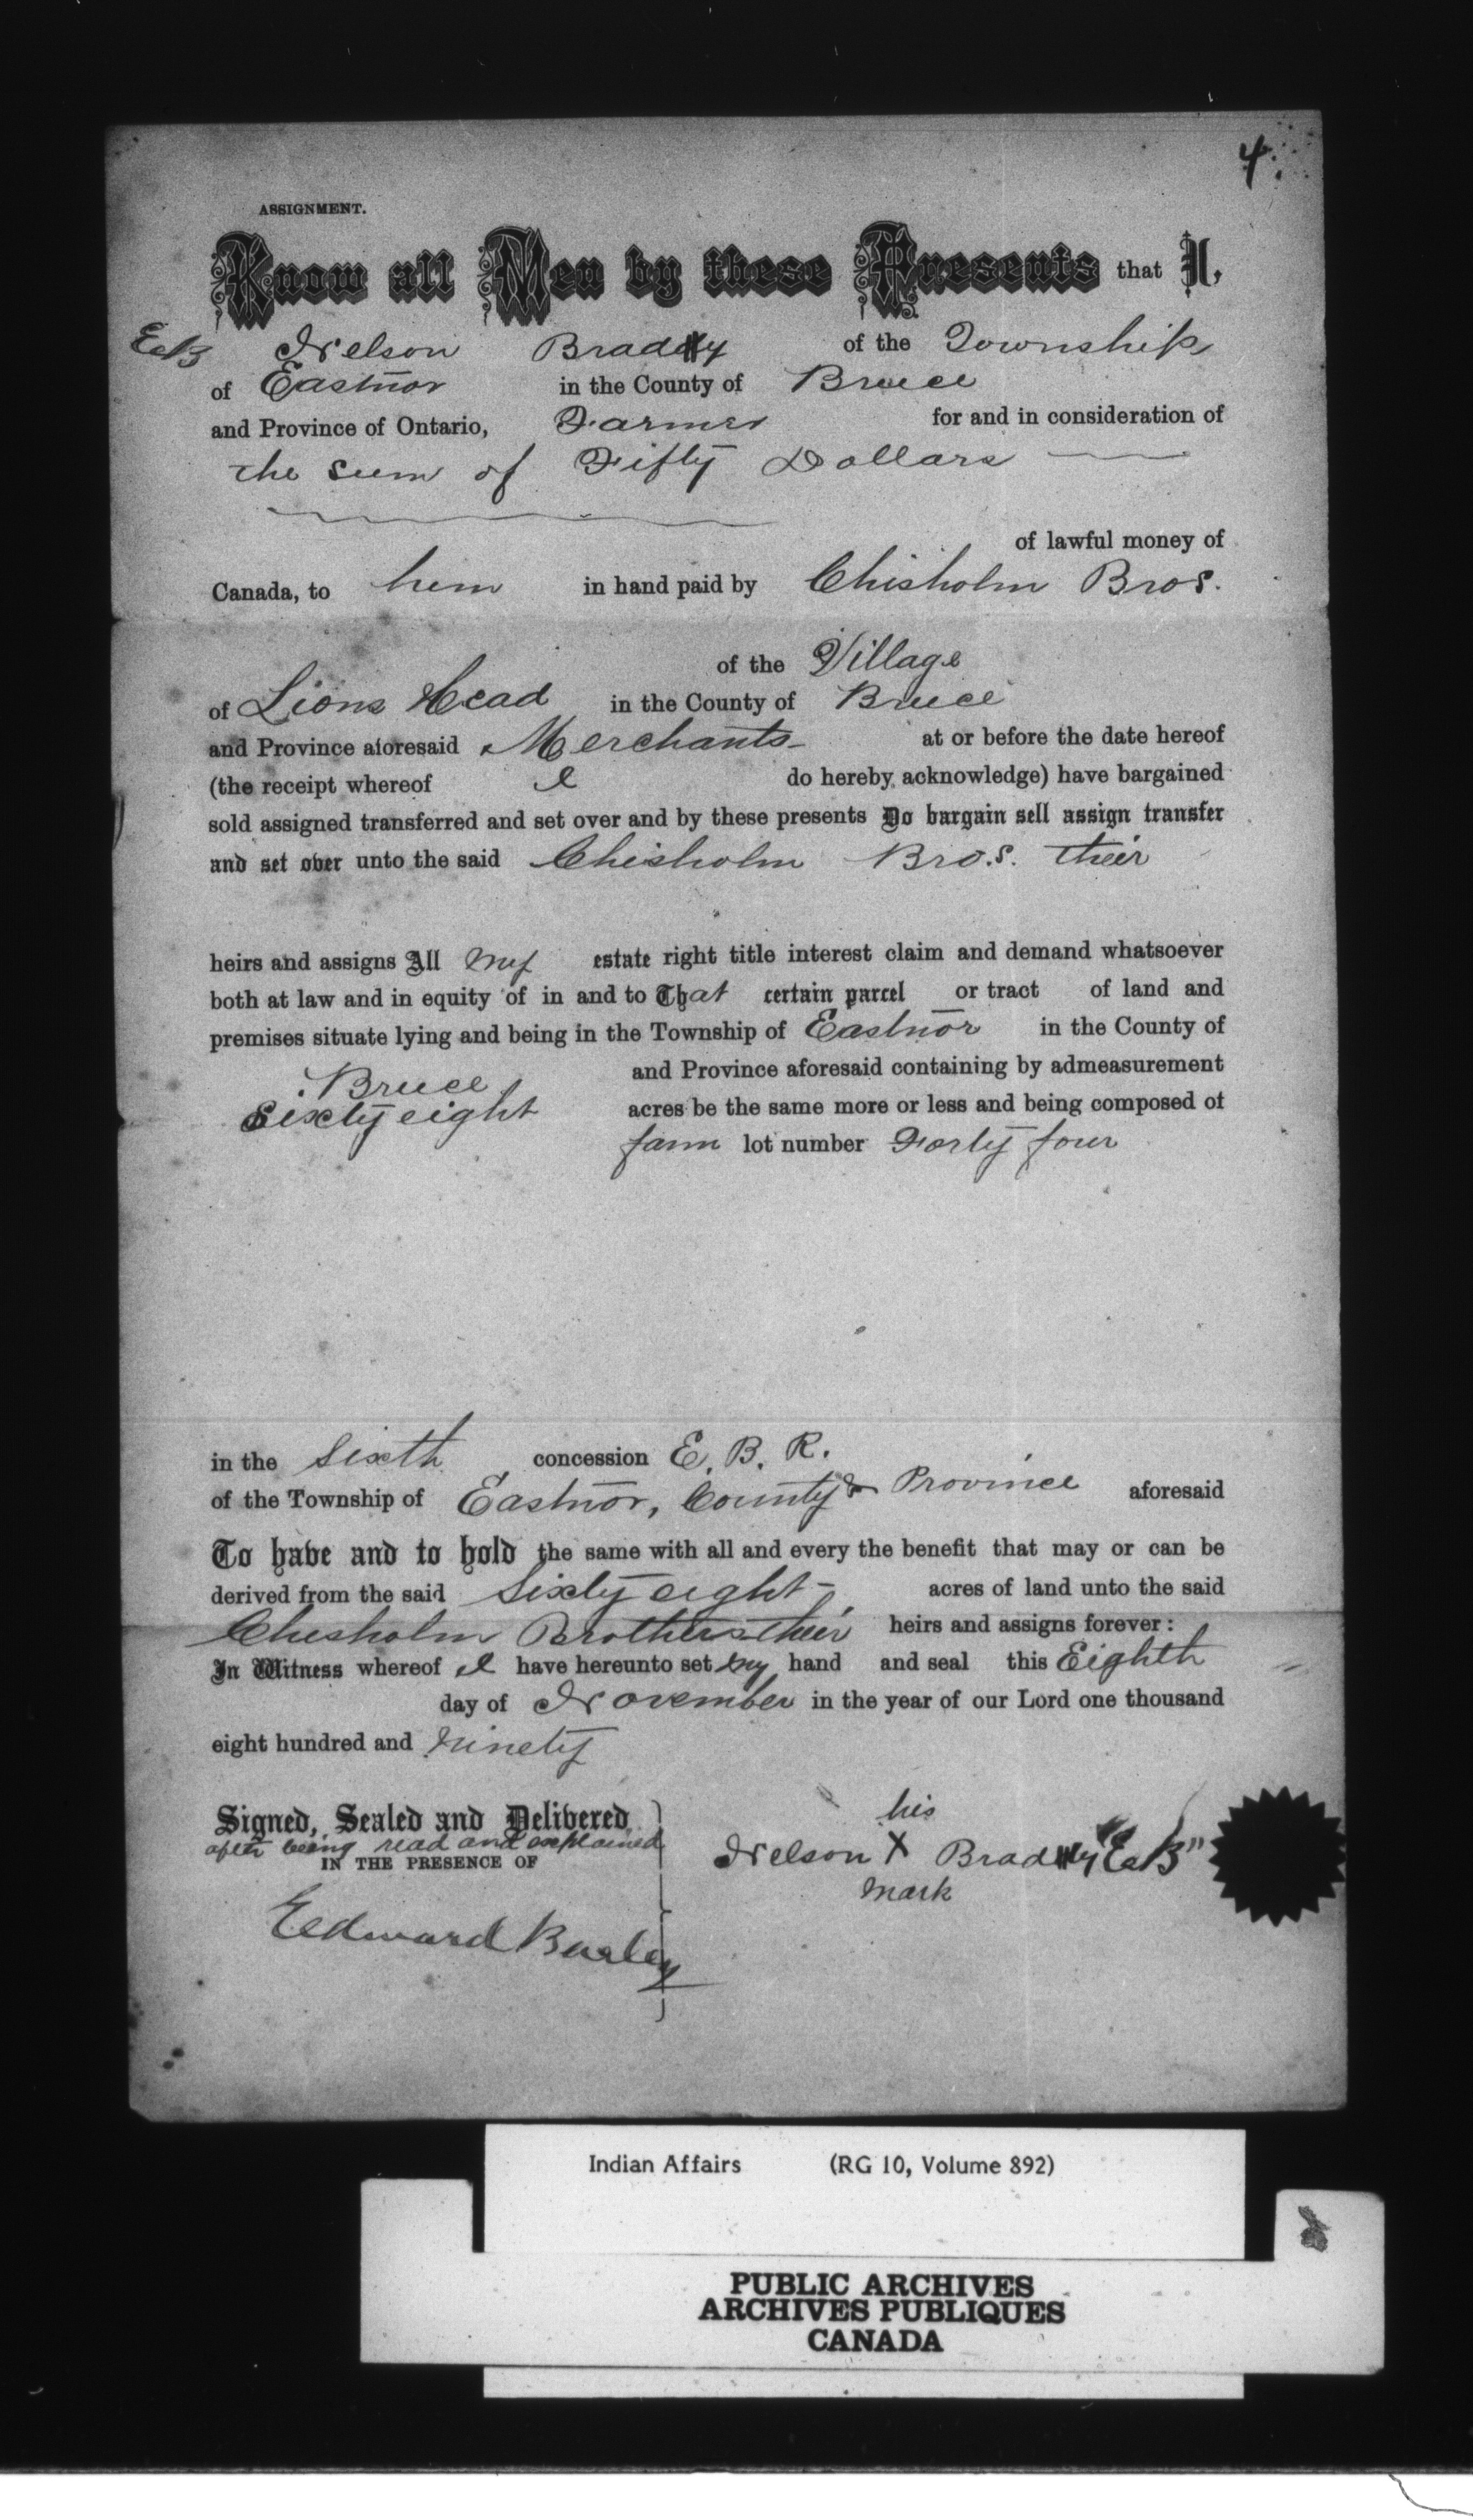 4
ASSIGNMENT.
Know all Men by these Presents that I,
EeB Nelson Bradey of the Township
of Eastnor in the County of Bruce
and Province of Ontario, Farmer for and in consideration of
the sum of Fifty Dollars
of lawful money of
Canada, to him in hand paid by Chisholm Bros.
of the Village
of Lions Head in the County of Bruce
and Province aforesaid Merchants at or before the date hereof
(the receipt whereof I do hereby acknowledge) have bargained
sold assigned transferred and set over and by these presents Do bargain sell assign transfer
and set over unto the said Chisholm Bros. their
heirs and assigns All my estate right title interest claim and demand whatsoever
both at law and in equity of in and to That certain parcel or tract of land and
premises situate lying and being in the Township of Eastnor in the County of
Bruce and Province aforesaid containing by admeasurement
Sixty eight acres be the same more or less and being composed of
farm lot number Forty four
in the Sixth concession E. B. R.
of the Township of Eastnor, County & Province aforesaid
To have and to hold the same with all and every the benefit that may or can be
derived from the said Sixty eight acres of land unto the said
Chisholm Brothers their heirs and assigns forever:
In Witness whereof I have hereunto set my hand and seal this Eighth
day of November in the year of our Lord one thousand
eight hundred and Ninety
Signed, Sealed and Delivered
after being read and explained
IN THE PRESENCE OF
his
Nelson X Bradey "EeB"
mark
Eedward Barley
Indian Affairs (RG 10, Volume 892)
PUBLIC ARCHIVES
ARCHIVES PUBLIQUES
CANADA